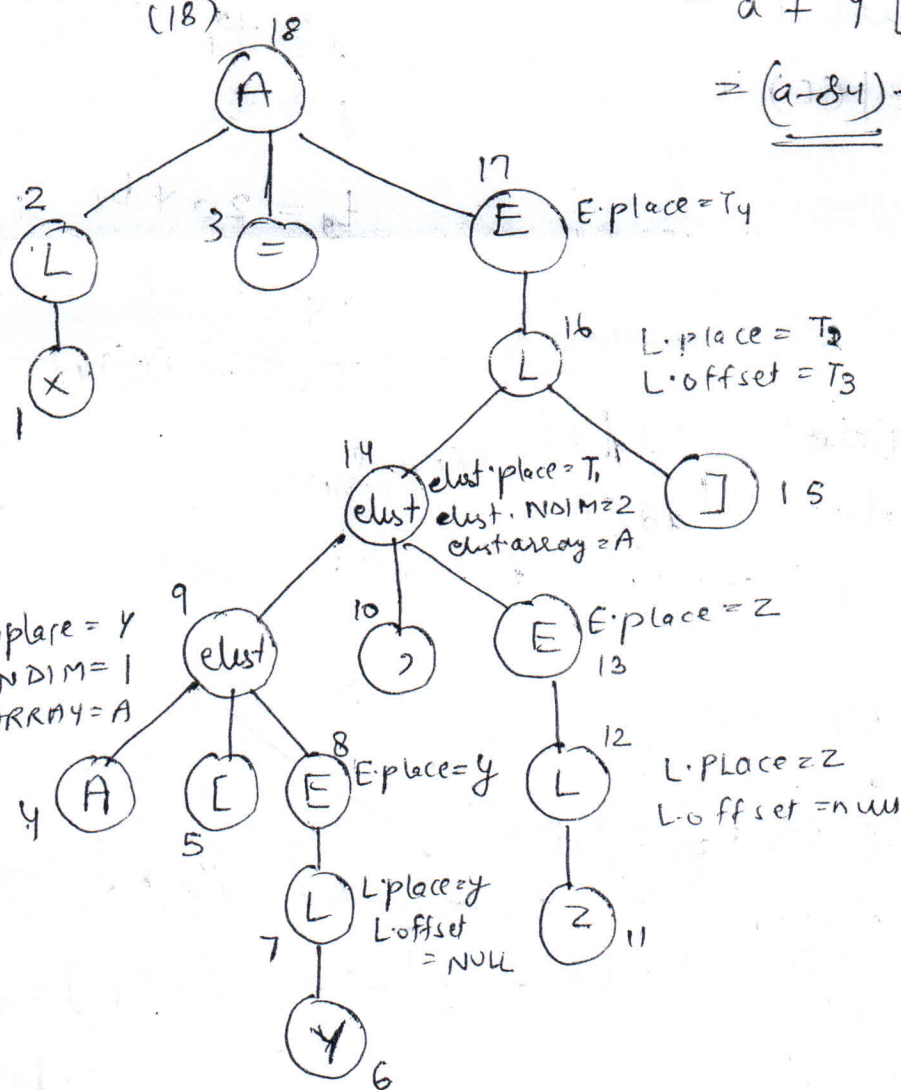 (18)
a + 4 [
= (a-84) -
18
A
17
E
E.place = T4
2
L
3
=
1
x
16
L
L.place = T2
L.offset = T3
14
elist
elist.place = T1
elist.NDIM=2
elist.array = A
]
15
9
elist
place = y
NDIM = 1
RRAY = A
10
,
E
E.place = z
13
4
A
5
[
8
E
E.place = y
12
L
L.PLace = z
L.offset = null
7
L
L.place = y
L.offset
= NULL
z
11
y
6